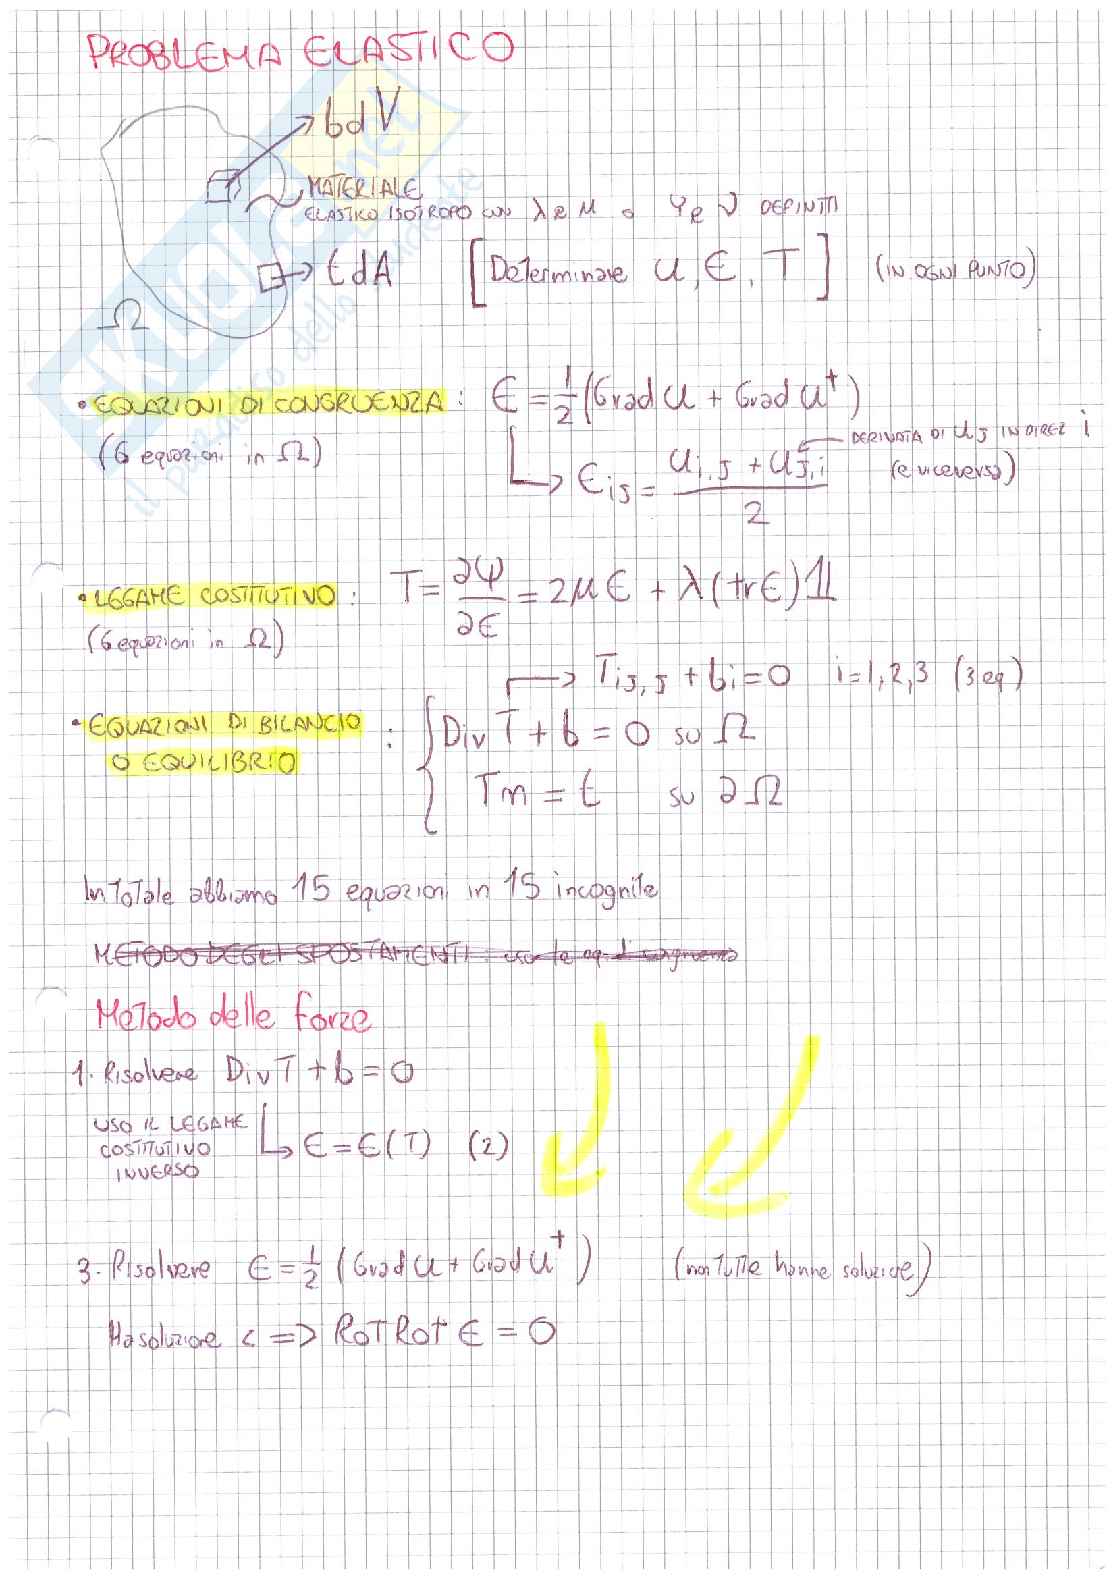 PROBLEMA ELASTICO
b dV
MATERIALE
ELASTICO ISOTROPO CON λ e μ o ψ e ν DEFINITI
t dA [Determinare u, ϵ, T] (IN OGNI PUNTO)
Ω
• EQUAZIONI DI CONGRUENZA : ϵ = 1/2 (Grad u + Grad u^t)
(6 equazioni in Ω)
DERIVATA DI uj IN DIREZ i
(e viceversa)
ϵij = (ui,j + uj,i) / 2
• LEGAME COSTITUTIVO : T = ∂ψ/∂ϵ = 2μϵ + λ(trϵ)1
(6 equazioni in Ω)
Tij,j + bi = 0 i=1,2,3 (3 eq)
• EQUAZIONI DI BILANCIO : { Div T + b = 0 su Ω
O EQUILIBRIO
Tn = t su ∂Ω
In Totale abbiamo 15 equazioni in 15 incognite
METODO DEGLI SPOSTAMENTI: uso le eq. di congruenza
Metodo delle forze
1. Risolvere Div T + b = 0
USO IL LEGAME
COSTITUTIVO
INVERSO
ϵ = ϵ(T) (2)
3. Risolvere ϵ = 1/2 (Grad u + Grad u^t) (non Tutte hanno soluzione)
Ha soluzione <=> Rot Rot ϵ = 0
SKUOLA.net
il paradiso dello studente